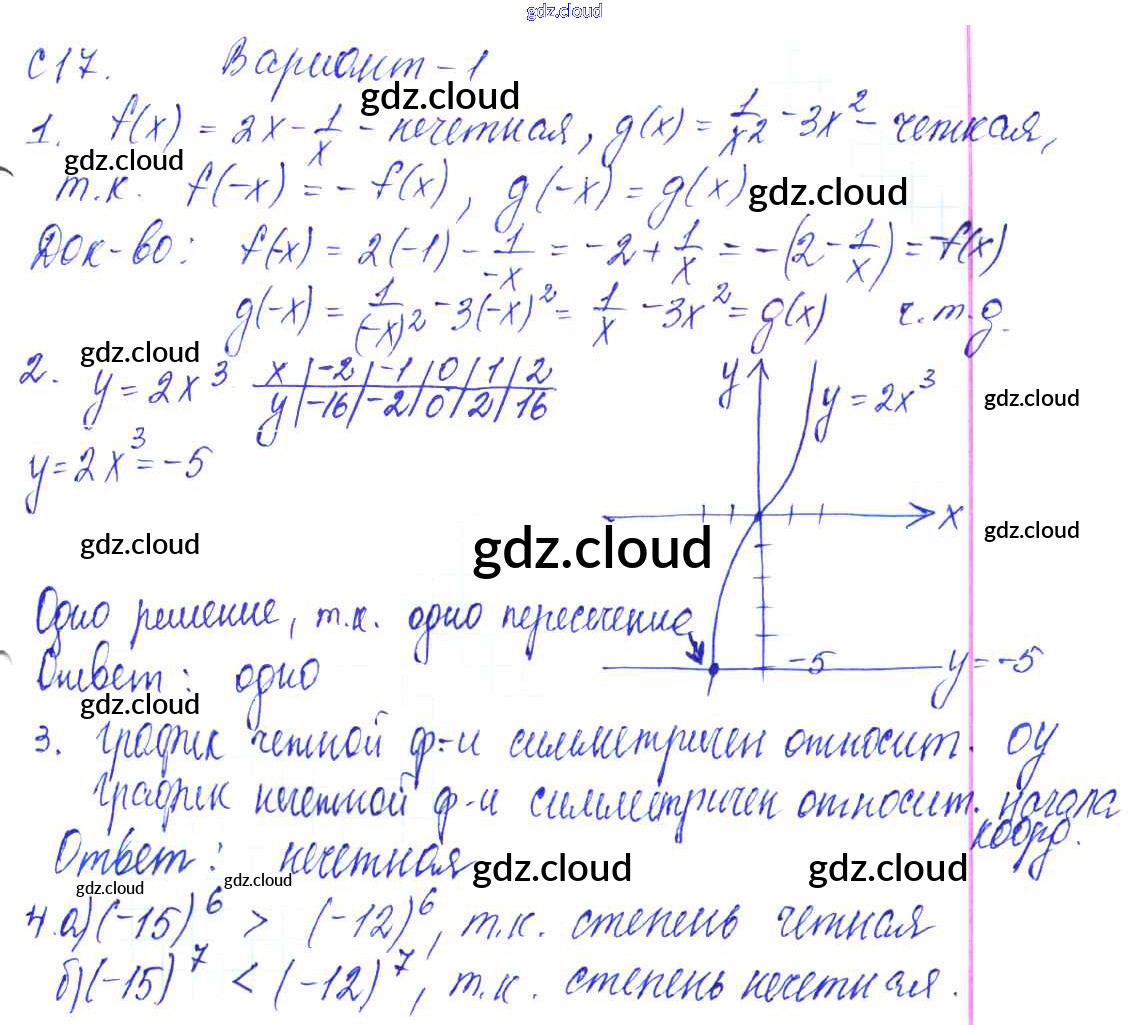 gdz.cloud
С17. Вариант-1
gdz.cloud
1. f(x) = 2x - 1/x - нечетная, g(x) = 1/x² - 3x² - четная,
gdz.cloud
т.к. f(-x) = - f(x), g(-x) = g(x)
gdz.cloud
Док-во: f(-x) = 2(-1) - 1/-x = -2 + 1/x = -(2 - 1/x) = -f(x)
g(-x) = 1/(-x)² - 3(-x)² = 1/x - 3x² = g(x) ч.т.д.
gdz.cloud
2. y = 2x³
x | -2 | -1 | 0 | 1 | 2
y | -16 | -2 | 0 | 2 | 16
y
y = 2x³
gdz.cloud
y = 2x³ = -5
x
gdz.cloud
gdz.cloud
gdz.cloud
Одно решение, т.к. одно пересечение
-5
y = -5
Ответ: одно
gdz.cloud
3. График четной ф-и симметричен относит. OY
График нечетной ф-и симметричен относит. начала
коорд.
Ответ: нечетная
gdz.cloud
gdz.cloud
gdz.cloud
gdz.cloud
4. а) (-15)⁶ > (-12)⁶, т.к. степень четная
б) (-15)⁷ < (-12)⁷, т.к. степень нечетная.